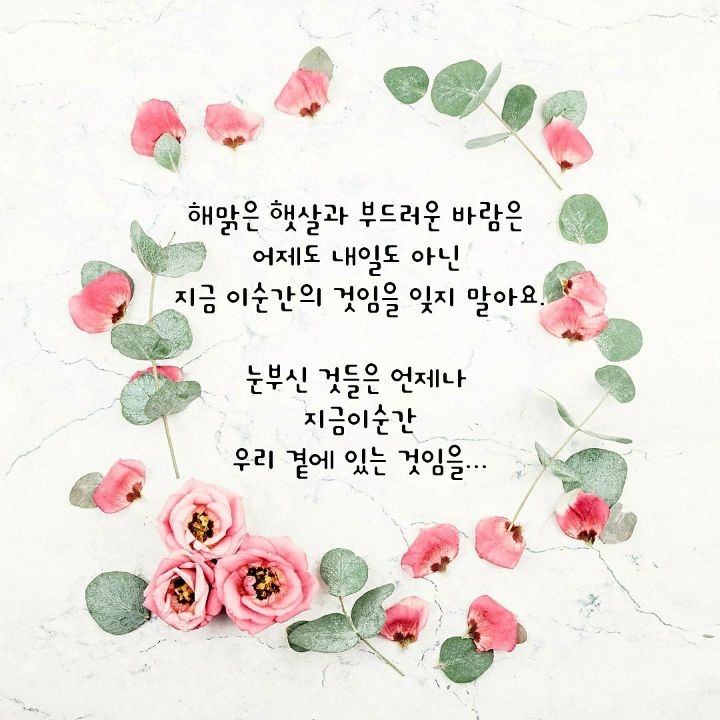 해맑은 햇살과 부드러운 바람은
어제도 내일도 아닌
지금 이순간의 것임을 잊지 말아요.
눈부신 것들은 언제나
지금이순간
우리 곁에 있는 것임을...